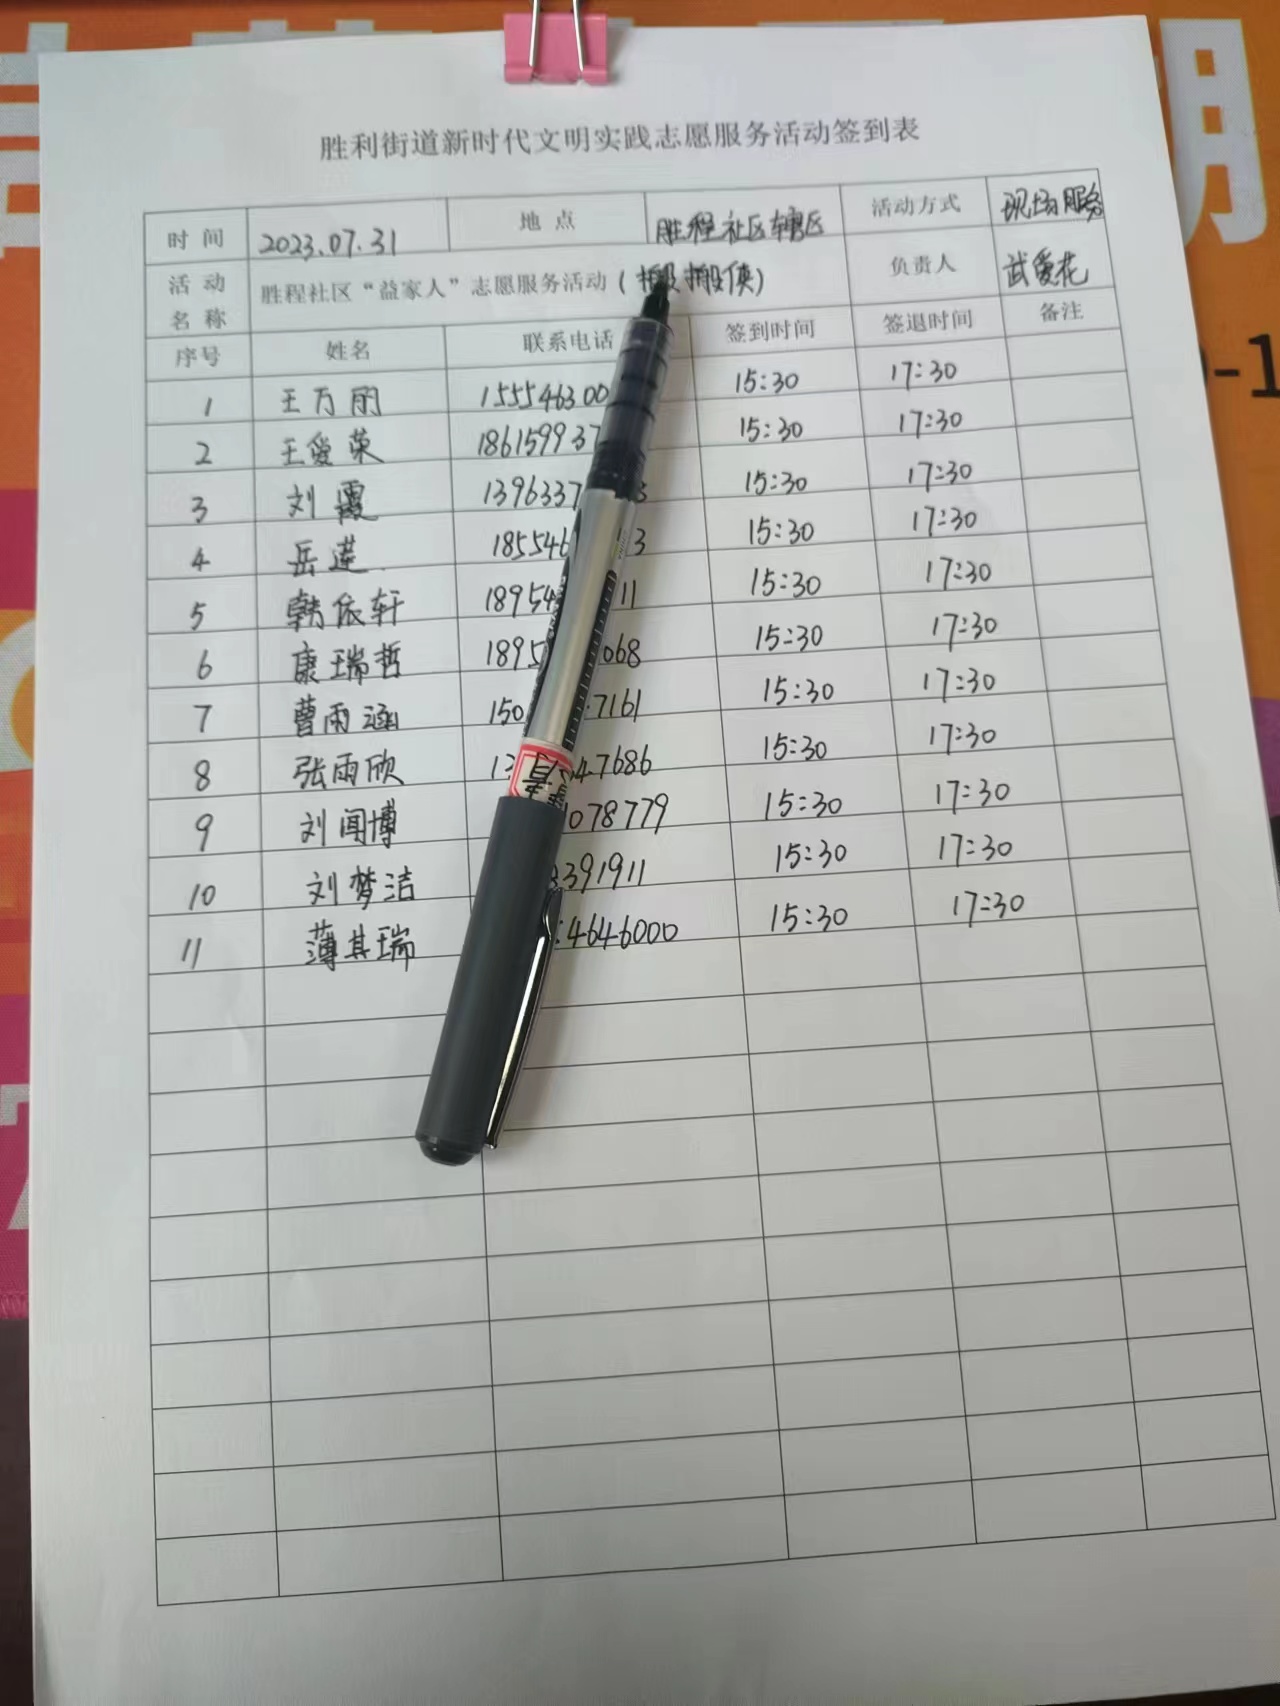 胜利街道新时代文明实践志愿服务活动签到表
时间 2023.07.31 地点 胜程社区辖区 活动方式 现场服务
活动名称 胜程社区“益家人”志愿服务活动（搬搬侠） 负责人 武爱花
序号 姓名 联系电话 签到时间 签退时间 备注
1 王万丽 155546300 15:30 17:30
2 王爱荣 186159937 15:30 17:30
3 刘霞 1396337 3 15:30 17:30
4 岳莲 185546 3 15:30 17:30
5 韩依轩 18954 11 15:30 17:30
6 康瑞哲 1895 068 15:30 17:30
7 曹雨涵 150 7161 15:30 17:30
8 张雨欣 13 47686 15:30 17:30
9 刘闻博 078779 15:30 17:30
10 刘梦洁 391911 15:30 17:30
11 薄其瑞 4646000 15:30 17:30